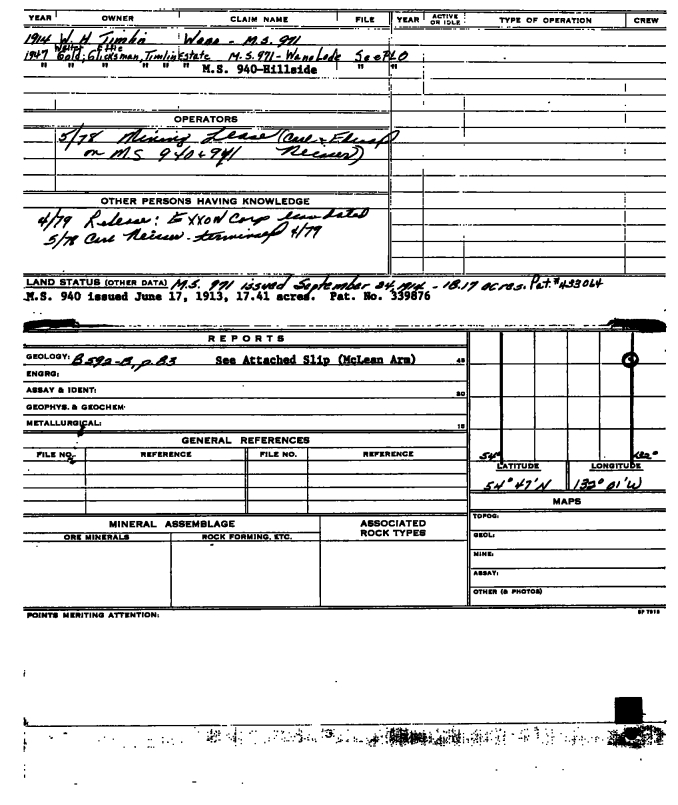 YEAR OWNER CLAIM NAME FILE YEAR ACTIVE OR IDLE TYPE OF OPERATION CREW
1914 W. H. Timlin Wano - M.S. 971
1947 Gold; Glicksman, Timlin Estate M.S. 971 - Wano Lode See PLO
" " " " " M.S. 940-Hillside " "
OPERATORS
5/78 Mining Lease (Carl &
on M.S. 940 & 971
OTHER PERSONS HAVING KNOWLEDGE
4/79 Release: EXXON Corp dated
5/78 Carl terminated 4/79
LAND STATUS (OTHER DATA) M.S. 971 issued September 24, 1914 - 18.17 acres. Pat. #433064
M.S. 940 issued June 17, 1913, 17.41 acres. Pat. No. 339876
REPORTS
GEOLOGY: B 592-B, p. B3 See Attached Slip (McLean Arm) 45
ENGRG:
ASSAY & IDENT: 30
GEOPHYS. & GEOCHEM.
METALLURGICAL: 15
GENERAL REFERENCES
FILE NO. REFERENCE FILE NO. REFERENCE
54° 132°
LATITUDE LONGITUDE
54° 47' N 132° 01' W
MAPS
MINERAL ASSEMBLAGE ASSOCIATED ROCK TYPES
ORE MINERALS ROCK FORMING, ETC.
TOPOG:
GEOL:
MINE:
ASSAY:
OTHER (& PHOTOS)
POINTS MERITING ATTENTION: